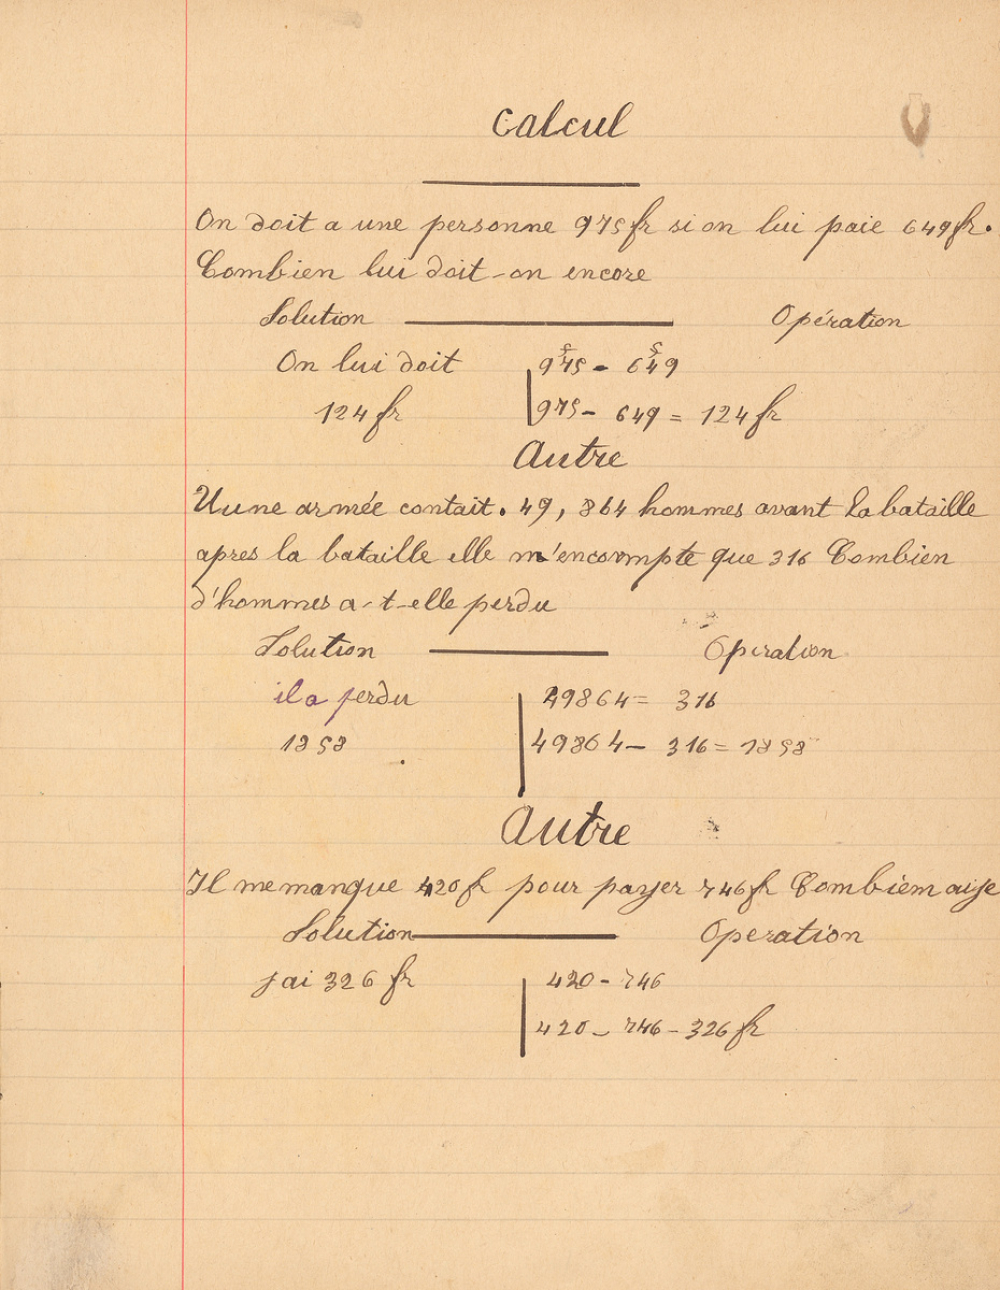 Calcul
On doit a une personne 975fr si on lui paie 649fr.
Combien lui doit-on encore
Solution Opération
On lui doit 975 - 649
124 fr 975 - 649 = 124 fr
Autre
Uune armée contait. 49, 864 hommes avant la bataille
apres la bataille elle n'encompte que 316 Combien
d'hommes a-t-elle perdu
Solution Operation
il a perdu 49864 = 316
1858 49864 - 316 = 1858
Autre
Il me manque 420fr pour payer 746fr Combiem aije
Solution Operation
j ai 326 fr 420 - 746
420 - 746 - 326 fr